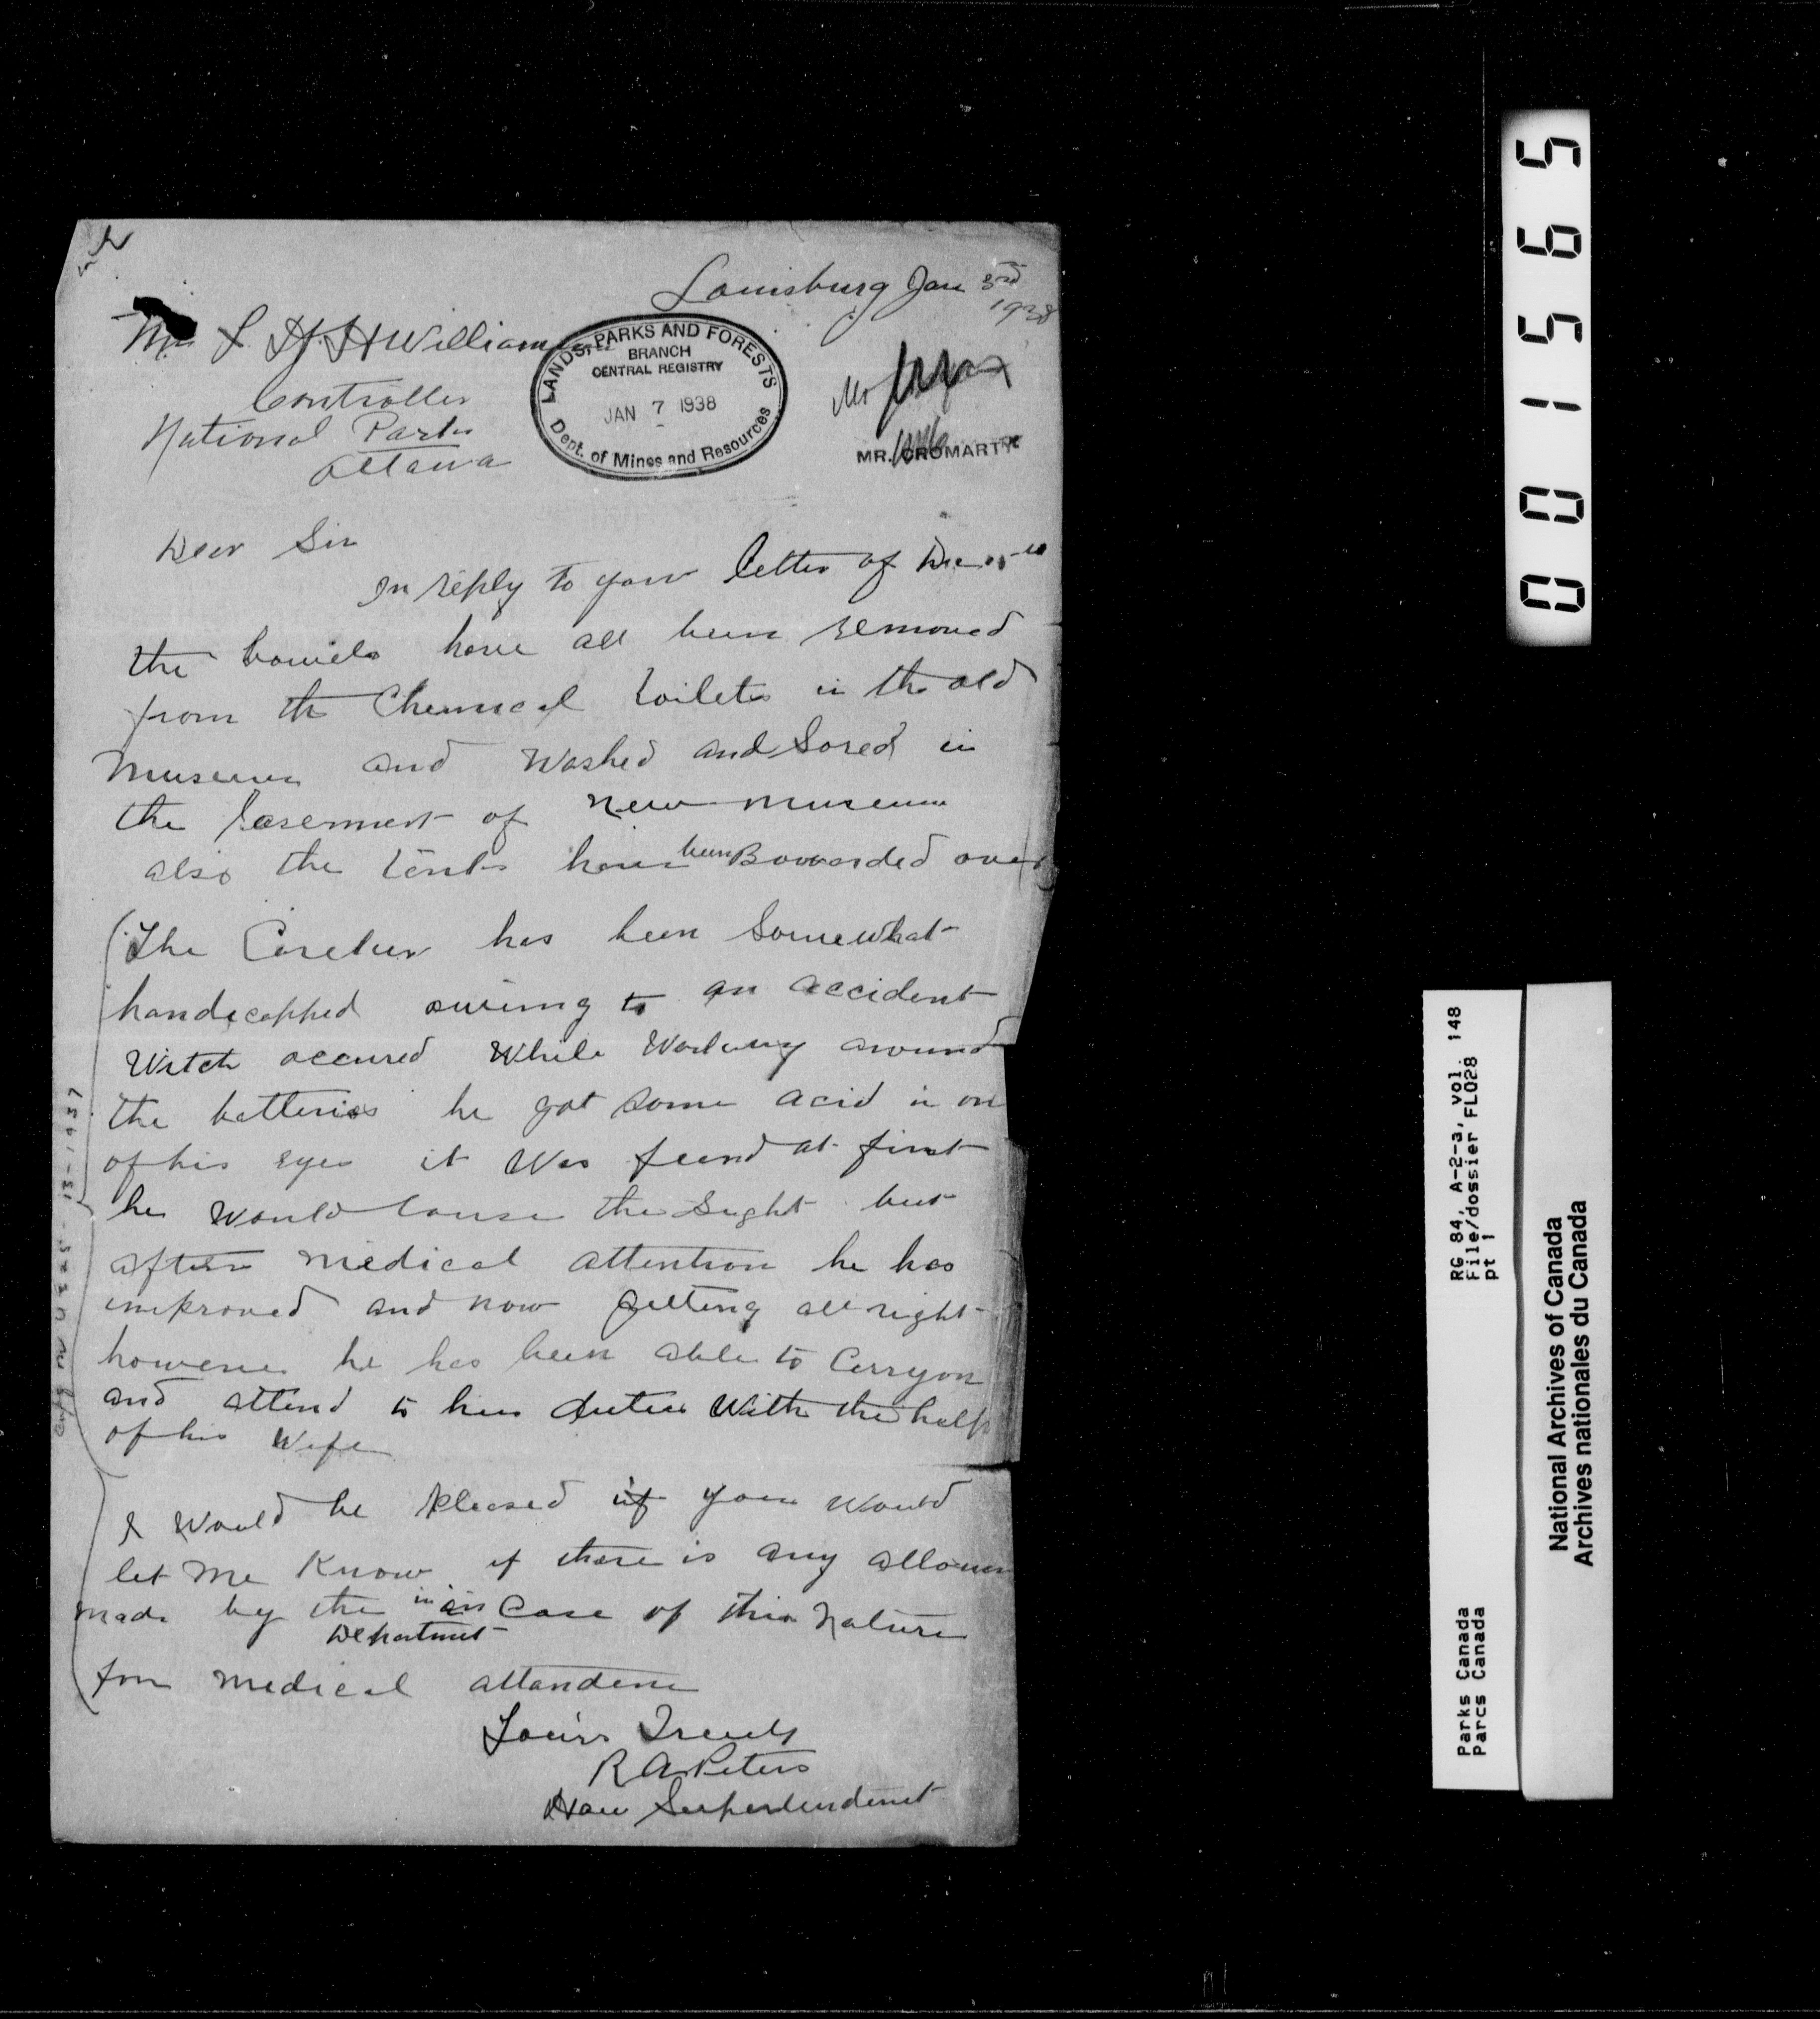 Louisburg Jan 3rd
1938
Mr
Williams
Controller
National Parks
Ottawa
LANDS, PARKS AND FORESTS
BRANCH
CENTRAL REGISTRY
JAN 7 1938
Dept. of Mines and Resources
Mr
MR. CROMARTY
Dear Sir
In reply to your letter of Dec
the bowels have all been removed
from the Chemical toilets in the old
Museum and Washed and Sored in
the basement of new museum
also the tents have been Bowarded over
The Caretaker has been Somewhat
handicapped owing to an accident
Witch occured While Working around
the batteries he got some acid in one
of his eyes it Was feard at first
he Would louse the sight but
after medical attention he has
improved and now getting all right
however he has been able to Carry on
and attend to his duties With the help
of his Wife
I Would be pleased if you Would
let me Know if there is any allowance
made by the in Case of this nature
Department
for medical attandence
Yours Truely
R A Peters
Hon Superdendent
13-1937
001565
RG 84, A-2-a, vol. 148
File/dossier FLO28
pt 1
Parks Canada
Parcs Canada
National Archives of Canada
Archives nationales du Canada